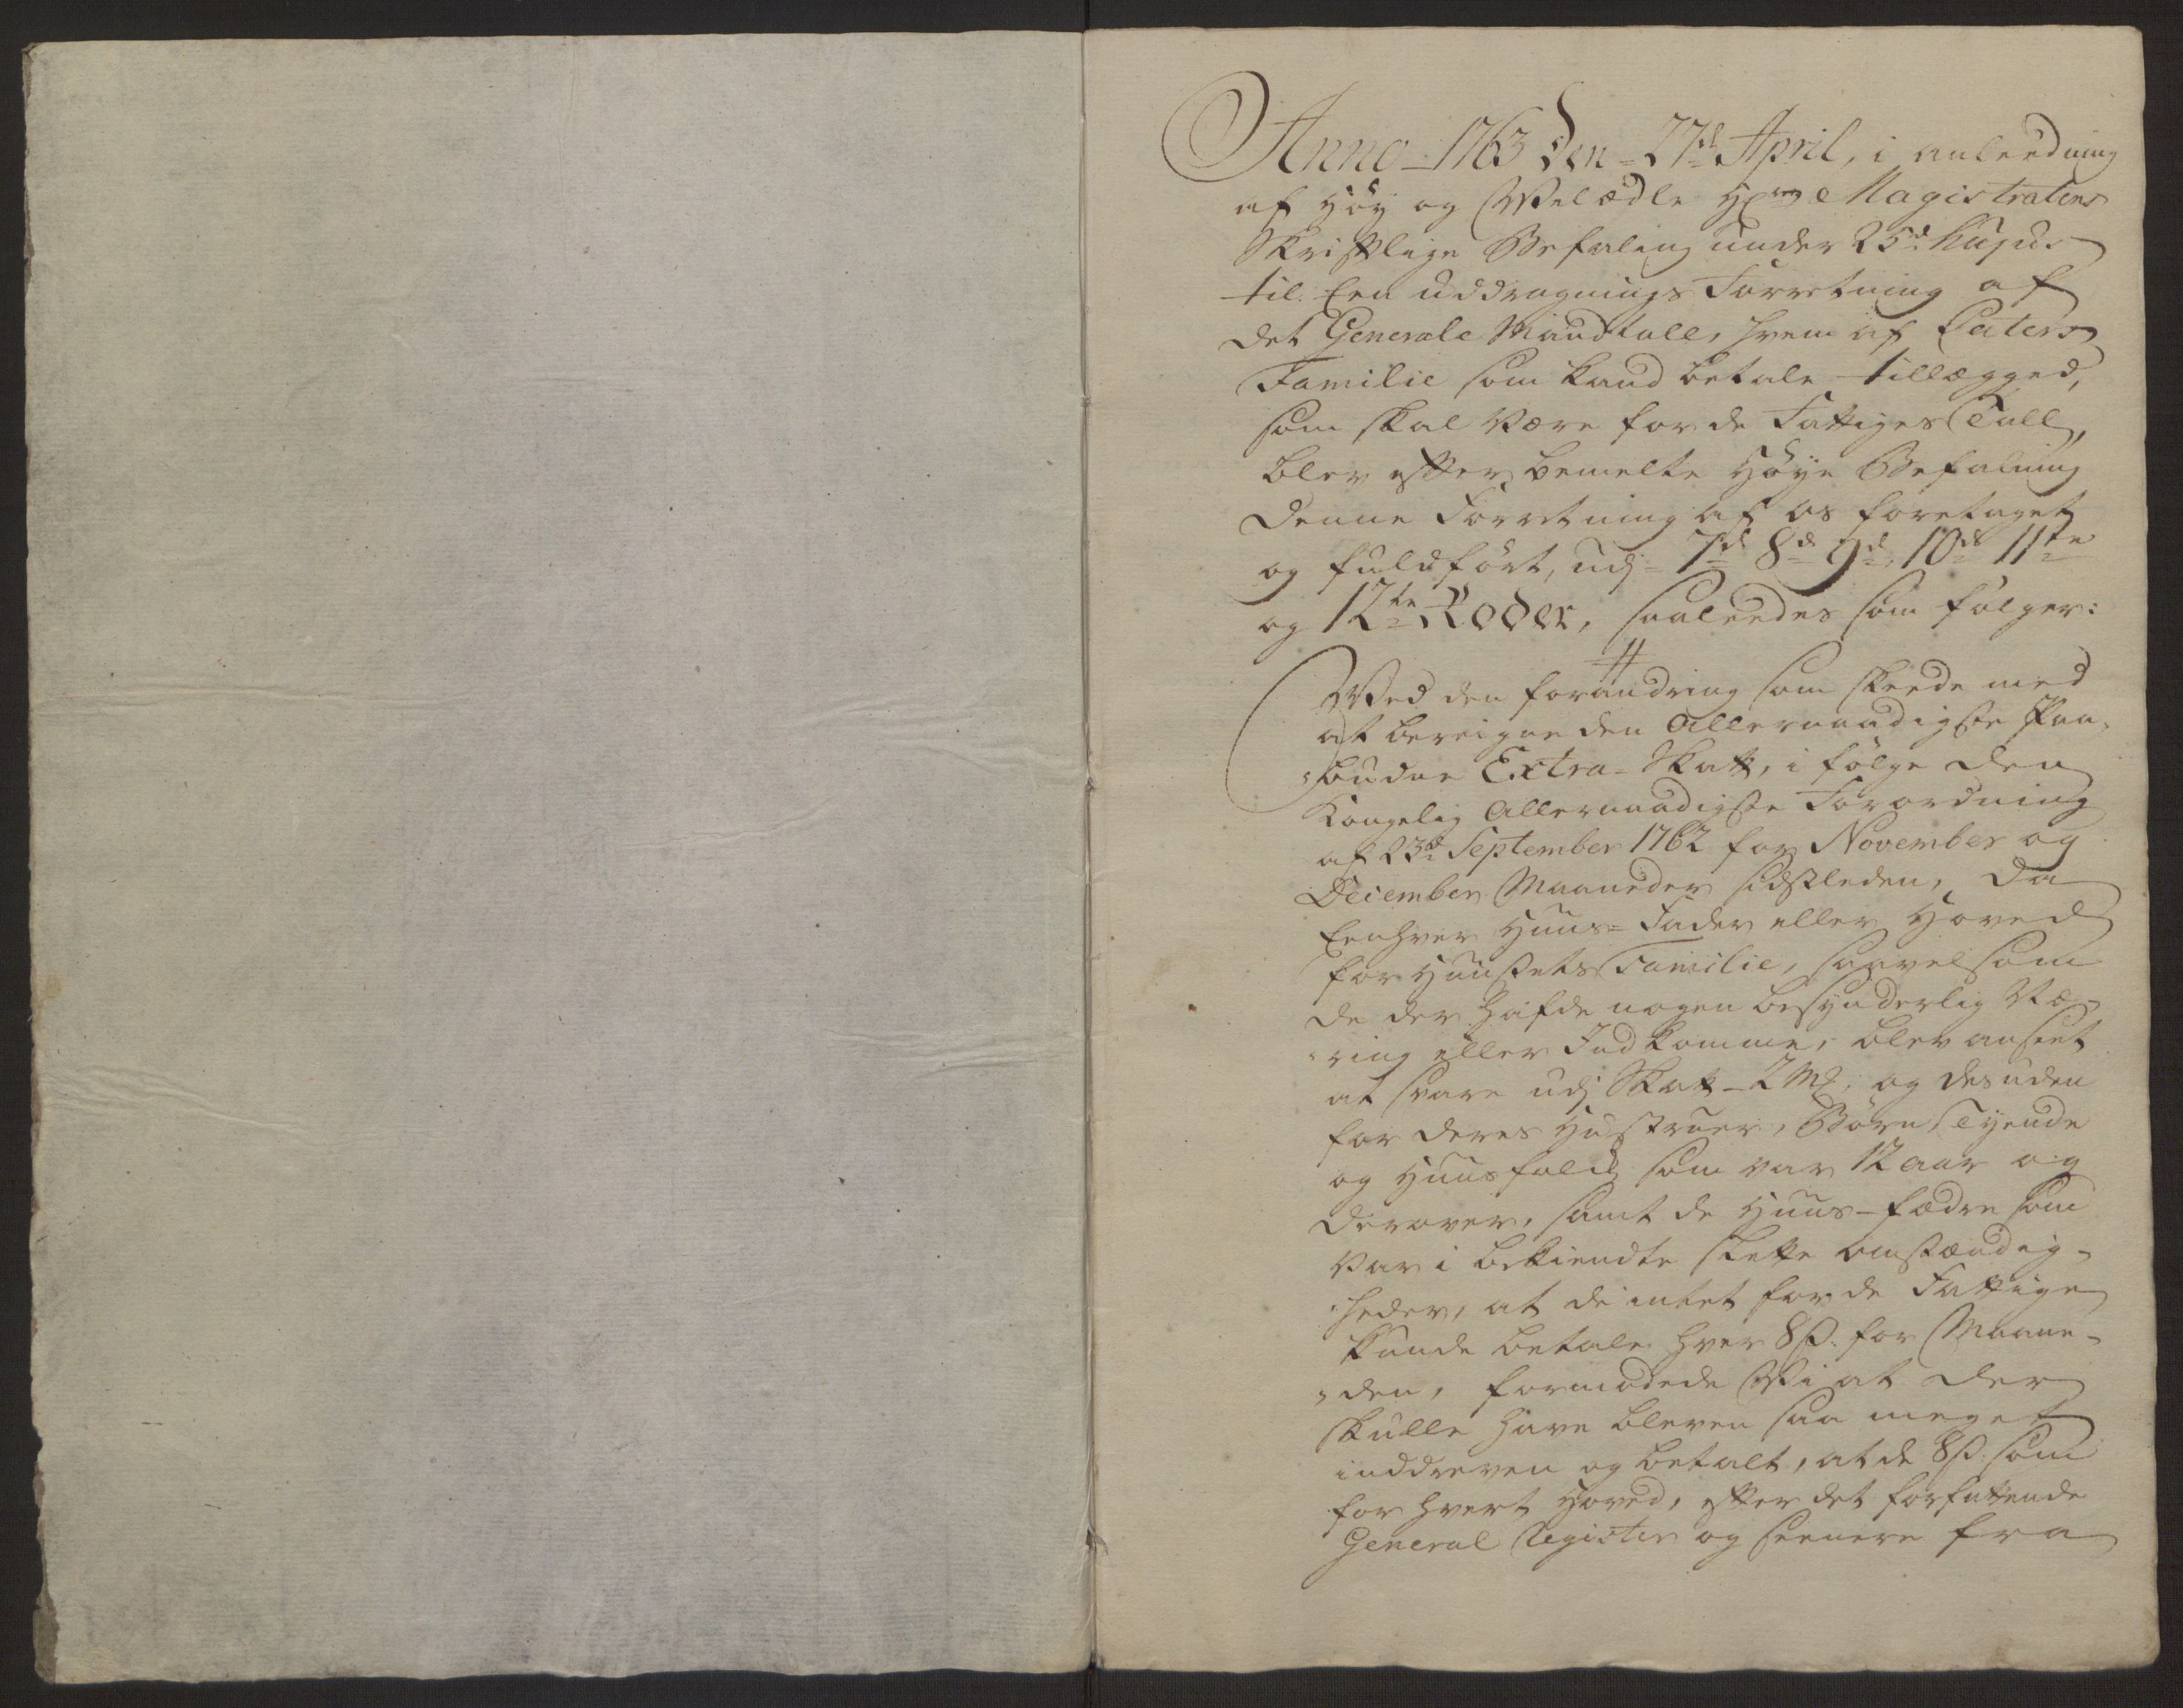 Anno 1763 den 27d April, i anleedning
af Höy og Velædle Hrr Magistratens
Skriftlige Befaling under 25d hujus
til Een uddragnings Forretning af
det Generale Mandtall, hvem af Paters
Familie som kand betale tillægged,
som skal være for de Fattiges Tall,
blev efter bemelte Höye Befalning
denne Forretning af os foretaget
og fuldfört, udj 7d 8d 9d 10d 11te
og 12te Roder, saaleedes som fölger:
Ved den forandring som skeede med
at bereigne den Allernaadigste Paa-
budne Extra-Skatt, i fölge den
Kongelig Allernaadigste Forordning
af 23d September 1762 for November og
December Maaneder sidstleden, da
Eenhver Huus-Fader eller Hoved
for Huusets Familie, saavelsom
de der hafde nogen besynderlig Næ-
ring eller Indkomme, blev anseet
at svare udj Skatt 2 Mk, og desuden
for deres Hustruer, Börn, Tyende
og Huusfolck som var 12 aar og
derover, samt de Huus-fædre som
var i bekiendte slette omstændig-
heder, at de intet for de Fattige
kunde betale hver 8ß. for Maane-
den, formodede Vi at der
skulle have bleven saa meget
inddreven og betalt, at de 8ß. som
for hvert Hoved, efter det forfattende
General Register og senere fra